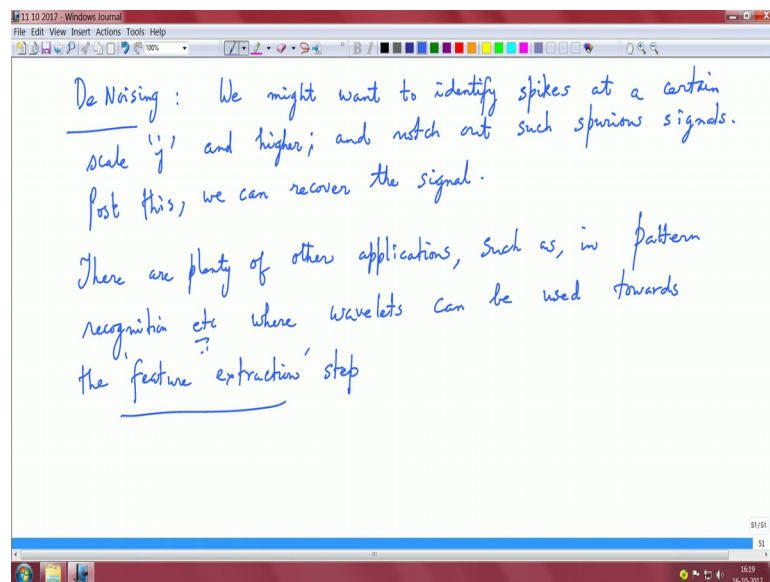 11 10 2017 - Windows Journal
File Edit View Insert Actions Tools Help
100%
De Noising : We might want to identify spikes at a certain
scale "j" and higher; and notch out such spurious signals.
Post this, we can recover the signal.
There are plenty of other applications, such as, in pattern
recognition etc where wavelets can be used towards
the 'feature extraction' step
51/51
51
16:19
16-10-2017